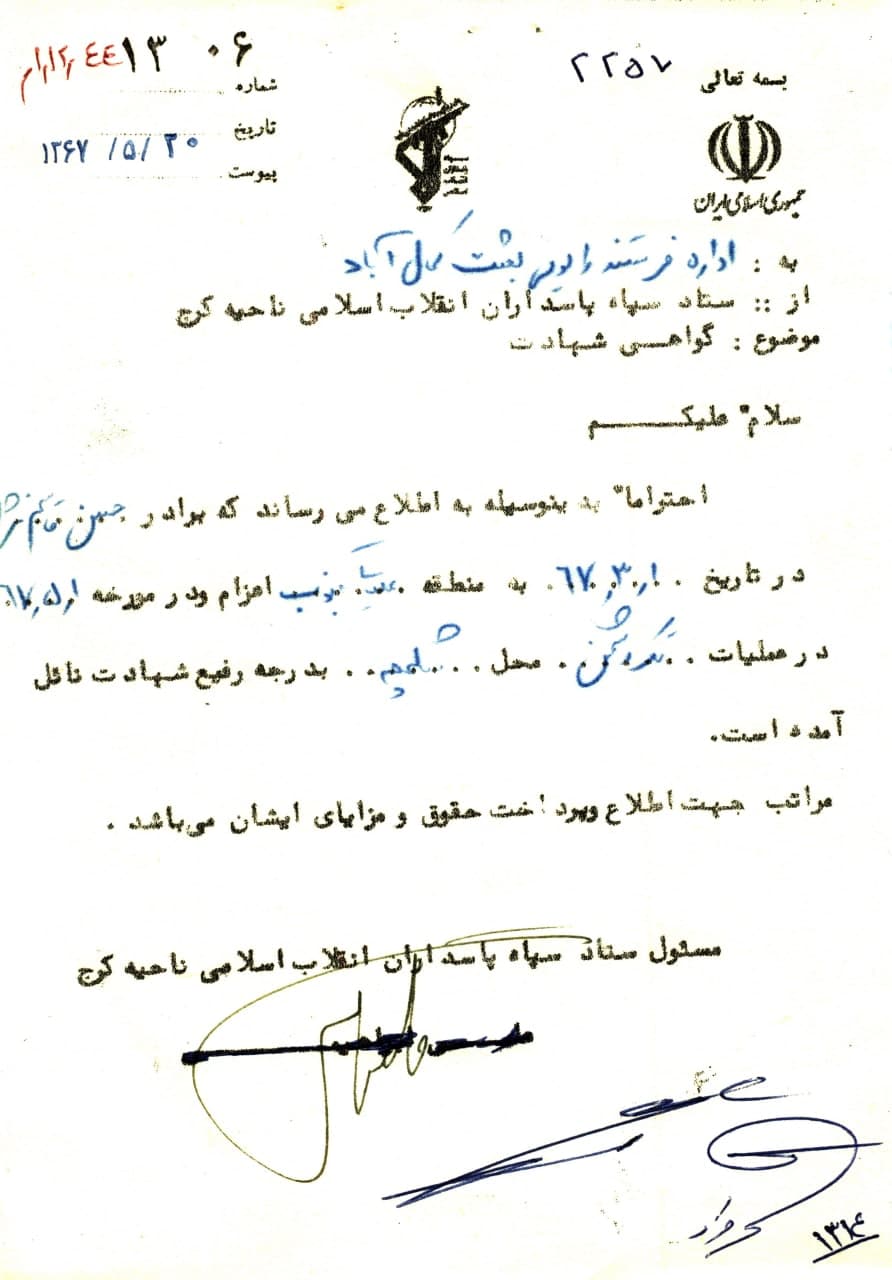 بسمه تعالی
۲۲۵۷
۱۳۰۶
شماره
تاریخ ۱۳۶۷/۵/۲۰
پیوست
جمهوری اسلامی ایران
به : اداره فرستنده رادیویی بعثت کمال آباد
از :: ستاد سپاه پاسداران انقلاب اسلامی ناحیه کرج
موضوع : گواهی شهادت
سلام" علیکم
احتراما" بدینوسیله به اطلاع می رساند که برادر حسین
در تاریخ ۶۷٫۳٫۱ به منطقه عملیاتی جنوب اعزام ودر مورخه ۶۷٫۵٫۱
در عملیات محل شلمچه بدرجه رفیع شهادت نائل
آمده است.
مراتب جهت اطلاع وپرداخت حقوق و مزایای ایشان می‌باشد .
مسئول ستاد سپاه پاسداران انقلاب اسلامی ناحیه کرج